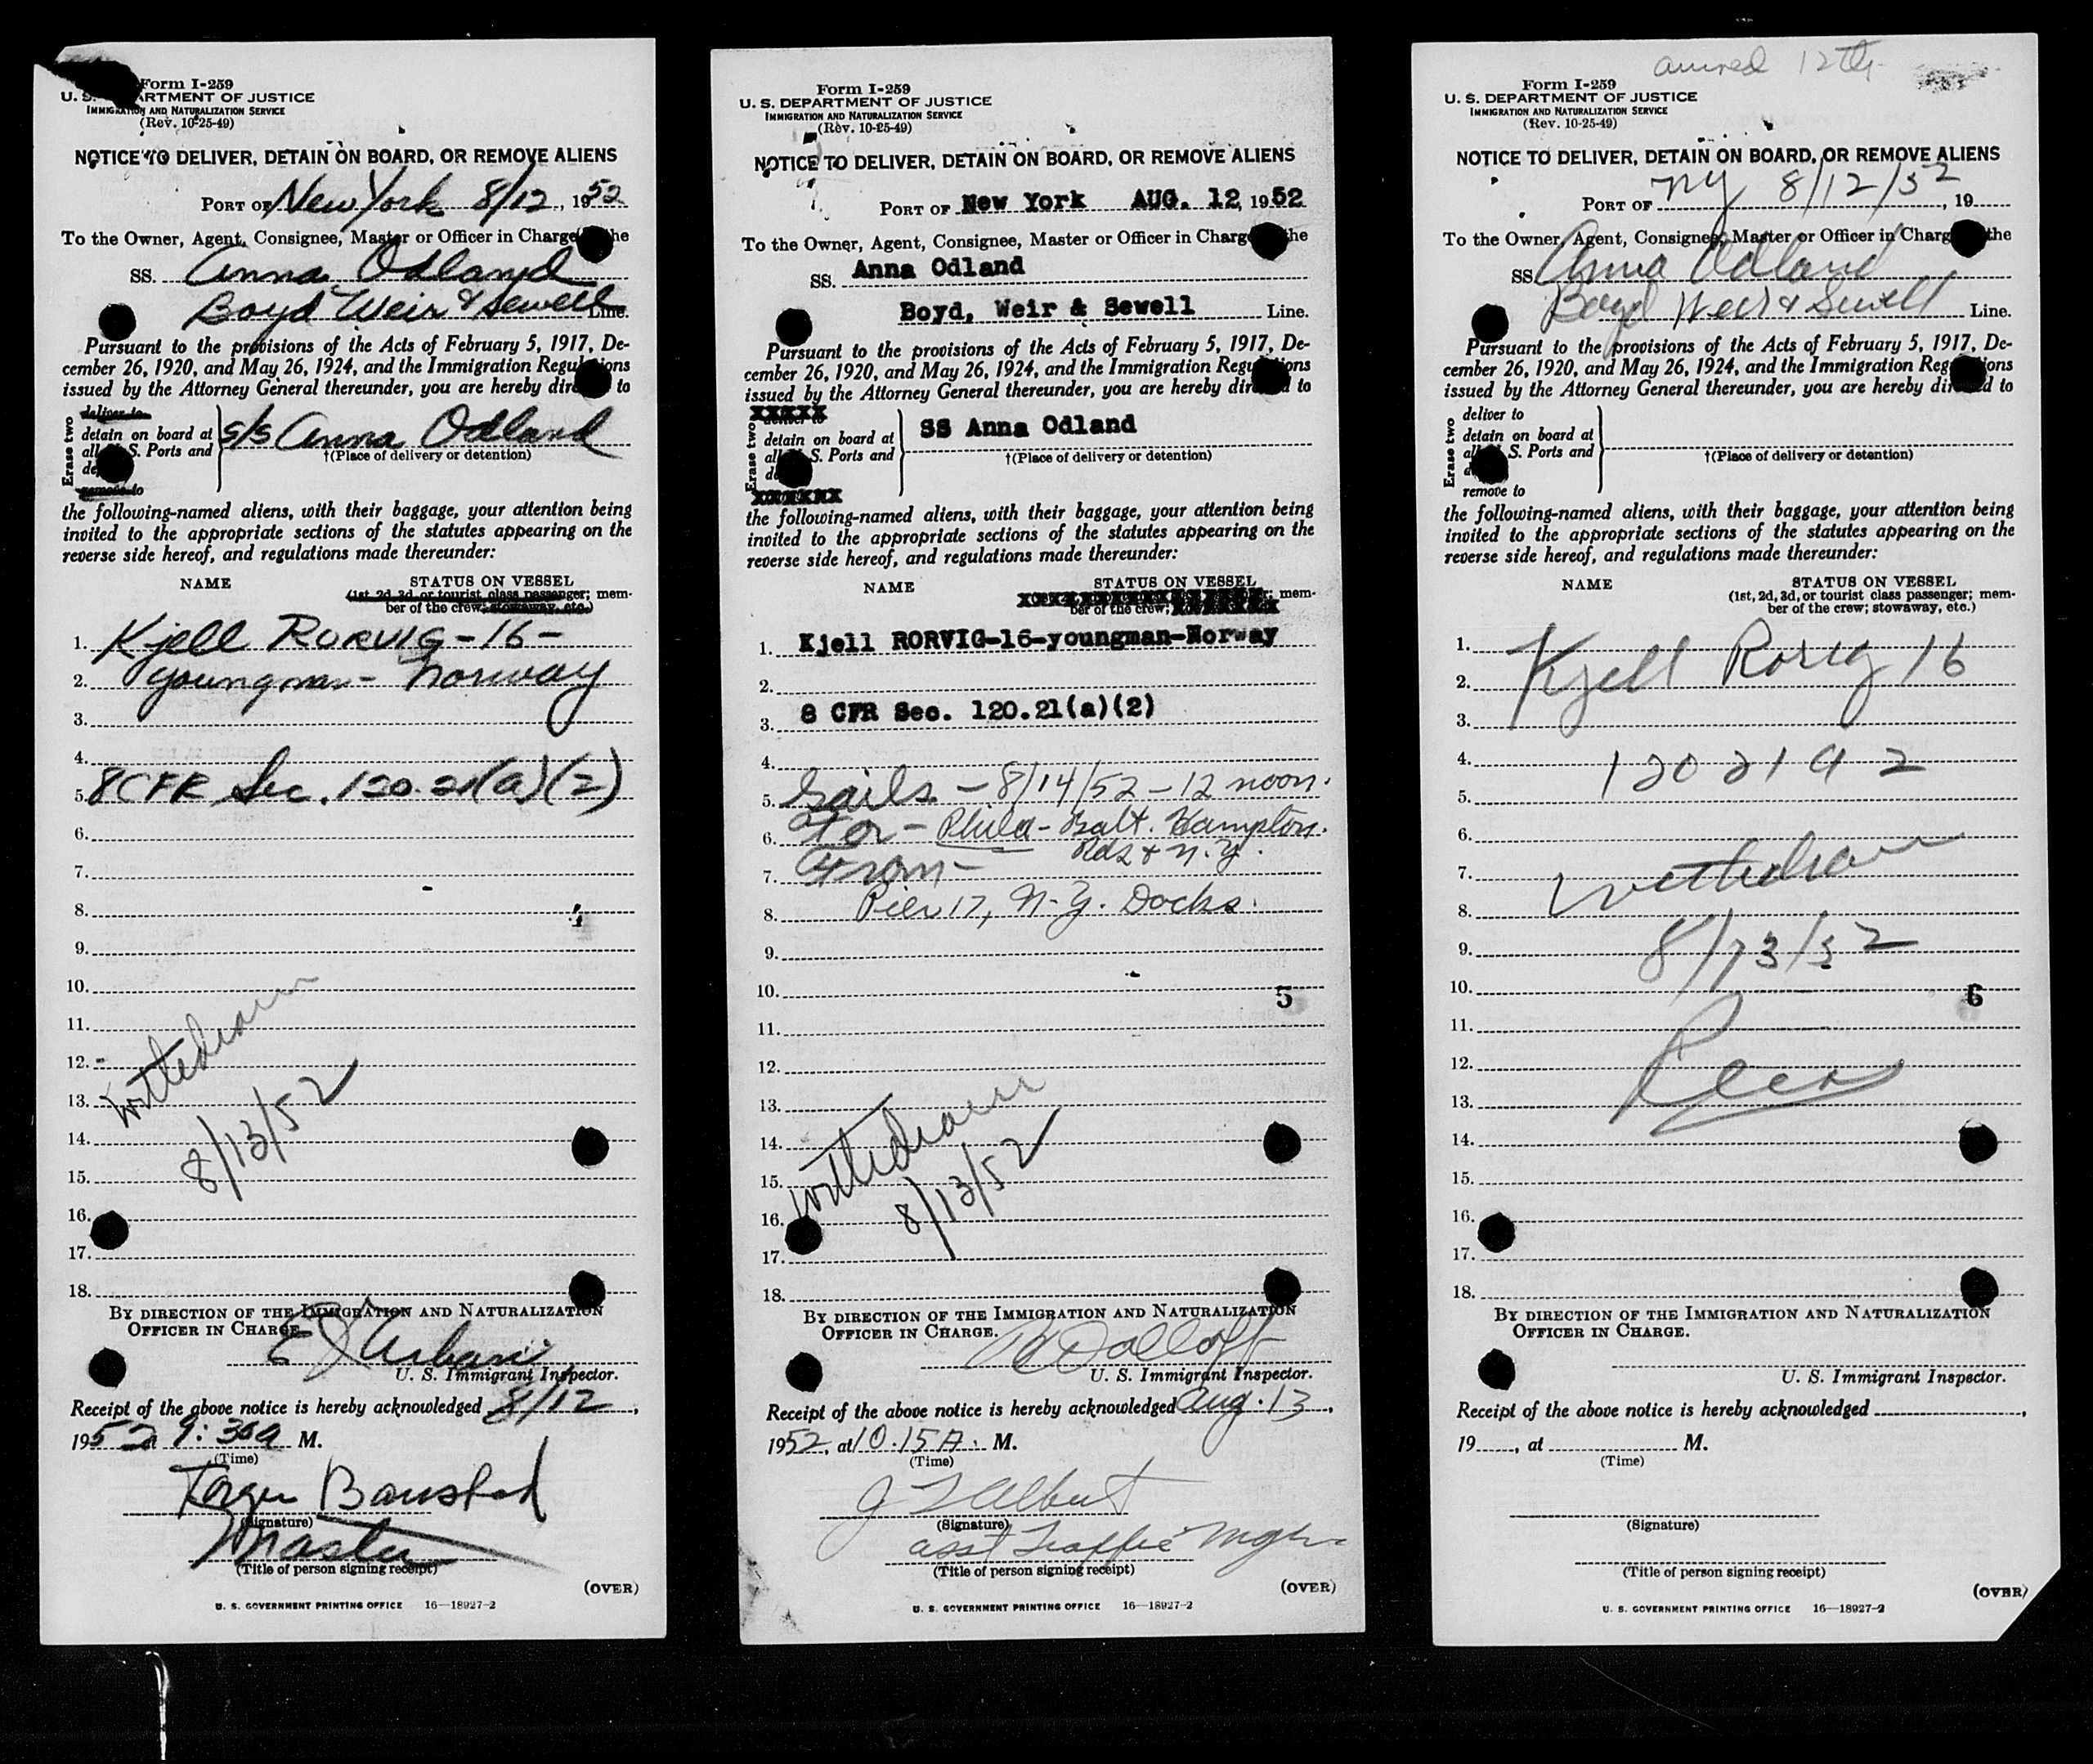 Form I-259
U. S. DEPARTMENT OF JUSTICE
IMMIGRATION AND NATURALIZATION SERVICE
(Rev. 10-25-49)
NOTICE TO DELIVER, DETAIN ON BOARD, OR REMOVE ALIENS
PORT OF New York 8/12, 1952
To the Owner, Agent, Consignee, Master or Officer in Charge the
SS. Anna Odland
Boyd Weir & Sewell Line.
Pursuant to the provisions of the Acts of February 5, 1917, De-
cember 26, 1920, and May 26, 1924, and the Immigration Regulations
issued by the Attorney General thereunder, you are hereby directed to
Erase two
deliver to
detain on board at
all U. S. Ports and
S/S Anna Odland
†(Place of delivery or detention)
remove to
the following-named aliens, with their baggage, your attention being
invited to the appropriate sections of the statutes appearing on the
reverse side hereof, and regulations made thereunder:
NAME STATUS ON VESSEL
(1st, 2d, 3d, or tourist class passenger; mem-
ber of the crew; stowaway, etc.)
1. Kjell RORVIG-16-
2. youngman- Norway
3.
4.
5. 8 CFR Sec. 120.21(a)(2)
6.
7.
8.
4
9.
10.
11.
12.
withdrawn
13.
8/13/52
14.
15.
16.
17.
18.
BY DIRECTION OF THE IMMIGRATION AND NATURALIZATION
OFFICER IN CHARGE.
E J Urban
U. S. Immigrant Inspector.
Receipt of the above notice is hereby acknowledged 8/12,
1952 at 9:30a M.
(Time)
(Signature)
Master
(Title of person signing receipt)
(OVER)
U. S. GOVERNMENT PRINTING OFFICE 16—18927-2
Form I-259
U. S. DEPARTMENT OF JUSTICE
IMMIGRATION AND NATURALIZATION SERVICE
(Rev. 10-25-49)
NOTICE TO DELIVER, DETAIN ON BOARD, OR REMOVE ALIENS
PORT OF New York AUG. 12, 1952
To the Owner, Agent, Consignee, Master or Officer in Charge the
SS. Anna Odland
Boyd, Weir & Sewell Line.
Pursuant to the provisions of the Acts of February 5, 1917, De-
cember 26, 1920, and May 26, 1924, and the Immigration Regulations
issued by the Attorney General thereunder, you are hereby directed to
Erase two
XXXXX
deliver to
detain on board at
all U. S. Ports and
SS Anna Odland
†(Place of delivery or detention)
XXXXXX
the following-named aliens, with their baggage, your attention being
invited to the appropriate sections of the statutes appearing on the
reverse side hereof, and regulations made thereunder:
NAME STATUS ON VESSEL
mem-
ber of the crew;
1. Kjell RORVIG-16-youngman-Norway
2.
3. 8 CFR Sec. 120.21(a)(2)
4.
5. Sails - 8/14/52 - 12 noon.
6. For - Phila - Balt. Hampton.
Rds & N.Y.
7. From -
8. Pier 17, N.Y. Docks.
9.
10.
5
11.
12.
13.
14.
withdrawn
15.
8/13/52
16.
17.
18.
BY DIRECTION OF THE IMMIGRATION AND NATURALIZATION
OFFICER IN CHARGE.
U. S. Immigrant Inspector.
Receipt of the above notice is hereby acknowledged Aug. 13,
1952, at 10.15 A. M.
(Time)
J Albert
(Signature)
asst Traffic Mgr
(Title of person signing receipt)
(OVER)
U. S. GOVERNMENT PRINTING OFFICE 16—18927-2
arrived 12th
Form I-259
U. S. DEPARTMENT OF JUSTICE
IMMIGRATION AND NATURALIZATION SERVICE
(Rev. 10-25-49)
NOTICE TO DELIVER, DETAIN ON BOARD, OR REMOVE ALIENS
PORT OF NY 8/12/52, 19
To the Owner, Agent, Consignee, Master or Officer in Charge the
SS. Anna Odland
Boyd Weir & Sewell Line.
Pursuant to the provisions of the Acts of February 5, 1917, De-
cember 26, 1920, and May 26, 1924, and the Immigration Regulations
issued by the Attorney General thereunder, you are hereby directed to
Erase two
deliver to
detain on board at
all U. S. Ports and
†(Place of delivery or detention)
remove to
the following-named aliens, with their baggage, your attention being
invited to the appropriate sections of the statutes appearing on the
reverse side hereof, and regulations made thereunder:
NAME STATUS ON VESSEL
(1st, 2d, 3d, or tourist class passenger; mem-
ber of the crew; stowaway, etc.)
1.
2. Kjell Rorvig 16
3.
4. 120 21 a 2
5.
6.
7. withdrawn
8.
9. 8/13/52
10.
6
11.
12.
13.
14.
15.
16.
17.
18.
BY DIRECTION OF THE IMMIGRATION AND NATURALIZATION
OFFICER IN CHARGE.
U. S. Immigrant Inspector.
Receipt of the above notice is hereby acknowledged ,
19 , at M.
(Time)
(Signature)
(Title of person signing receipt)
(OVER)
U. S. GOVERNMENT PRINTING OFFICE 16—18927-2